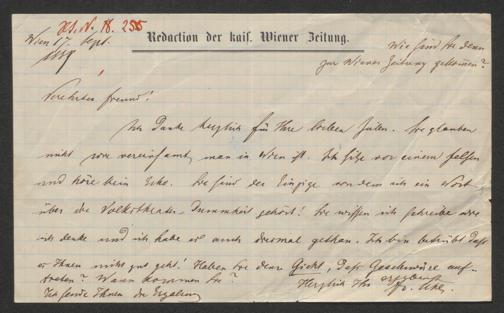 Redaction der kais. Wiener Zeitung.
Wien 17. Sept.
Wie sind Sie denn
zur Wiener Zeitung gekommen?
Verehrter Freund!
Ich danke herzlich für Ihre lieben Zeilen. Sie glauben
nicht wie vereinsamt man in Wien ist. Ich sitze vor einem Felsen
und höre kein Echo. Sie sind der Einzige von dem ich ein Wort
über die Volkstheater-Dummheit gehört! Sie wissen ich schreibe was
ich denke und ich habe es auch diesmal gethan. Ich bin betrübt daß
es Ihnen nicht gut geht! Haben Sie denn Gicht, daß Geschwüre auf-
treten? Wann kommen Sie? Herzlich Ihr ergebener
Ich sende Ihnen die